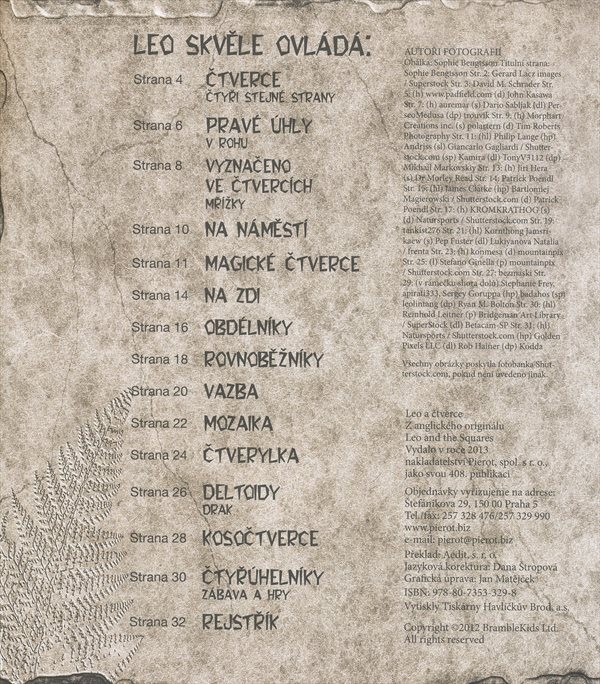 LEO SKVĚLE OVLÁDÁ:
Strana 4 ČTVERCE
ČTYŘI STEJNÉ STRANY
Strana 6 PRAVÉ ÚHLY
V ROHU
Strana 8 VYZNAČENO
VE ČTVERCÍCH
MŘÍŽKY
Strana 10 NA NÁMĚSTÍ
Strana 11 MAGICKÉ ČTVERCE
Strana 14 NA ZDI
Strana 16 OBDÉLNÍKY
Strana 18 ROVNOBĚŽNÍKY
Strana 20 VAZBA
Strana 22 MOZAIKA
Strana 24 ČTVERYLKA
Strana 26 DELTOIDY
DRAK
Strana 28 KOSOČTVERCE
Strana 30 ČTYŘÚHELNÍKY
ZÁBAVA A HRY
Strana 32 REJSTŘÍK
AUTOŘI FOTOGRAFIÍ
Obálka: Sophie Bengtsson Titulní strana:
Sophie Bengtsson Str. 2: Gerard Lacz images
/ Superstock Str. 3: David M. Schrader Str.
5: (h) www.padfield.com (d) John Kasawa
Str. 7: (h) auremar (s) Dario Sabljak (dl) Per-
seoMedusa (dp) trouvik Str. 9: (h) Morphart
Creations inc. (s) polastern (d) Tim Roberts
Photography Str. 11: (hl) Philip Lange (hp)
Andrjss (sl) Giancarlo Gagliardi / Shutter-
stock.com (sp) Kamira (dl) TonyV3112 (dp)
Mikhail Markovskiy Str. 13: (h) Jiri Hera
(s) Dr Morley Read Str. 14: Patrick Poendl
Str. 15: (hl) James Clarke (hp) Bartlomiej
Magierowski / Shutterstock.com (d) Patrick
Poendl Str. 17: (h) KROMKRATHOG (s)
(d) Natursports / Shutterstock.com Str. 19:
tankist276 Str. 21: (hl) Kornthong Jamsri-
kaew (s) Pep Fuster (dl) Lukiyanova Natalia
/ frenta Str. 23: (h) konmesa (d) mountainpix
Str. 25: (l) Stefano Ginella (p) mountainpix
/ Shutterstock.com Str. 27: beznaiski Str.
29: (v rámečku shora dolů) Stephanie Frey,
apiral333, Sergey Goruppa (hp) badahos (sp)
leolintang (dp) Ryan M. Bolton Str. 30: (hl)
Reinhold Leitner (p) Bridgeman Art Library
/ SuperStock (dl) Befacam-SP Str. 31: (hl)
Natursports / Shutterstock.com (hp) Golden
Pixels LLC (dl) Rob Hainer (dp) Kodda
Všechny obrázky poskytla fotobanka Shut-
terstock.com, pokud není uvedeno jinak.
Leo a čtverce
Z anglického originálu
Leo and the Squares
Vydalo v roce 2013
nakladatelství Pierot, spol. s r. o.,
jako svou 408. publikaci
Objednávky vyřizujeme na adrese:
Štefánikova 29, 150 00 Praha 5
Tel./fax: 257 328 476/257 329 990
www.pierot.biz
e-mail: pierot@pierot.biz
Překlad: Aedit, s. r. o.
Jazyková korektura: Dana Štropová
Grafická úprava: Jan Matějček
ISBN: 978-80-7353-329-8
Vytiskly Tiskárny Havlíčkův Brod, a.s.
Copyright ©2012 BrambleKids Ltd.
All rights reserved